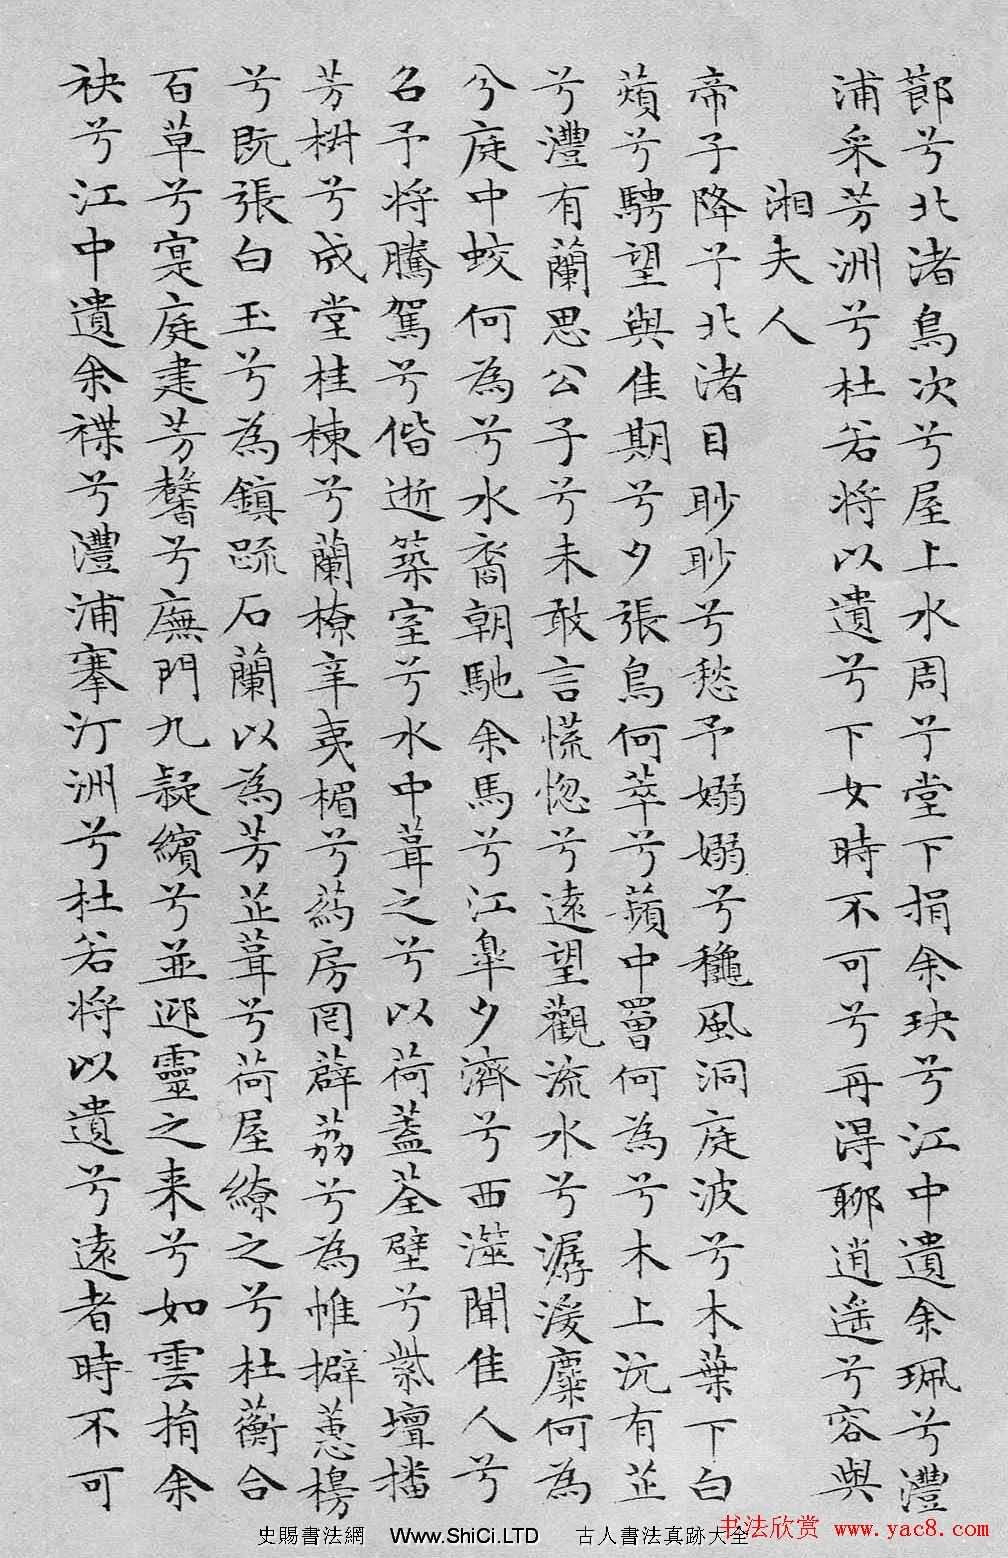 節兮北渚鳥次兮屋上水周兮堂下捐余玦兮江中遺余珮兮澧
浦采芳洲兮杜若將以遺兮下女時不可兮再得聊逍遥兮容與
湘夫人
帝子降兮北渚目眇眇兮愁予嫋嫋兮龝風洞庭波兮木葉下白
薠兮騁望與佳期兮夕張鳥何萃兮蘋中罾何為兮木上沅有芷
兮澧有蘭思公子兮未敢言慌惚兮遠望觀流水兮潺湲麋何為
兮庭中蛟何為兮水裔朝馳余馬兮江皐夕濟兮西澨聞佳人兮
名予將騰駕兮偕逝築室兮水中葺之兮以荷蓋荃壁兮紫壇播
芳椒兮成堂桂棟兮蘭橑辛夷楣兮葯房罔薜荔兮為帷擗蕙櫋
兮既張白玉兮為鎮䟽石蘭以為芳芷葺兮荷屋繚之兮杜蘅合
百草兮寔庭建芳馨兮廡門九疑繽兮並迎靈之来兮如雲捐余
袂兮江中遺余褋兮澧浦搴汀洲兮杜若將以遺兮遠者時不可
书法欣赏 www.yac8.com
史賜書法網 Www.ShiCi.LTD 古人書法真跡大全